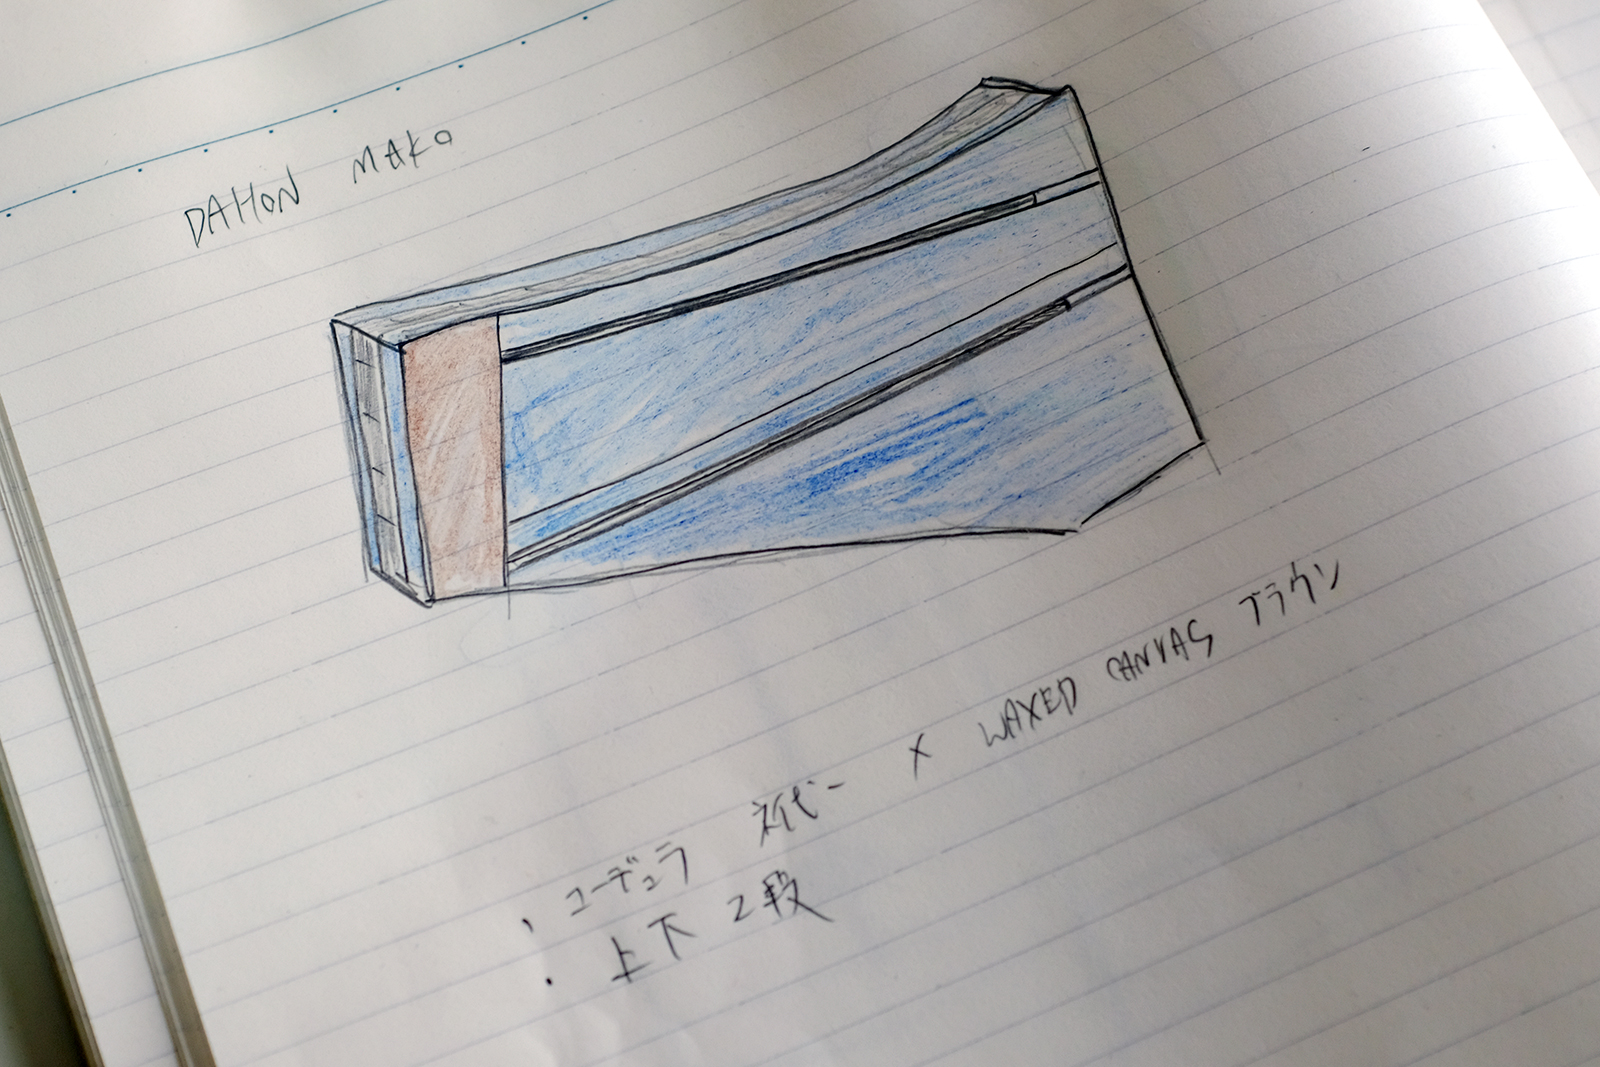 DAHON MAKO
・コーデュラ ネイビー × WAXED CANVAS ブラウン
・上下 2段